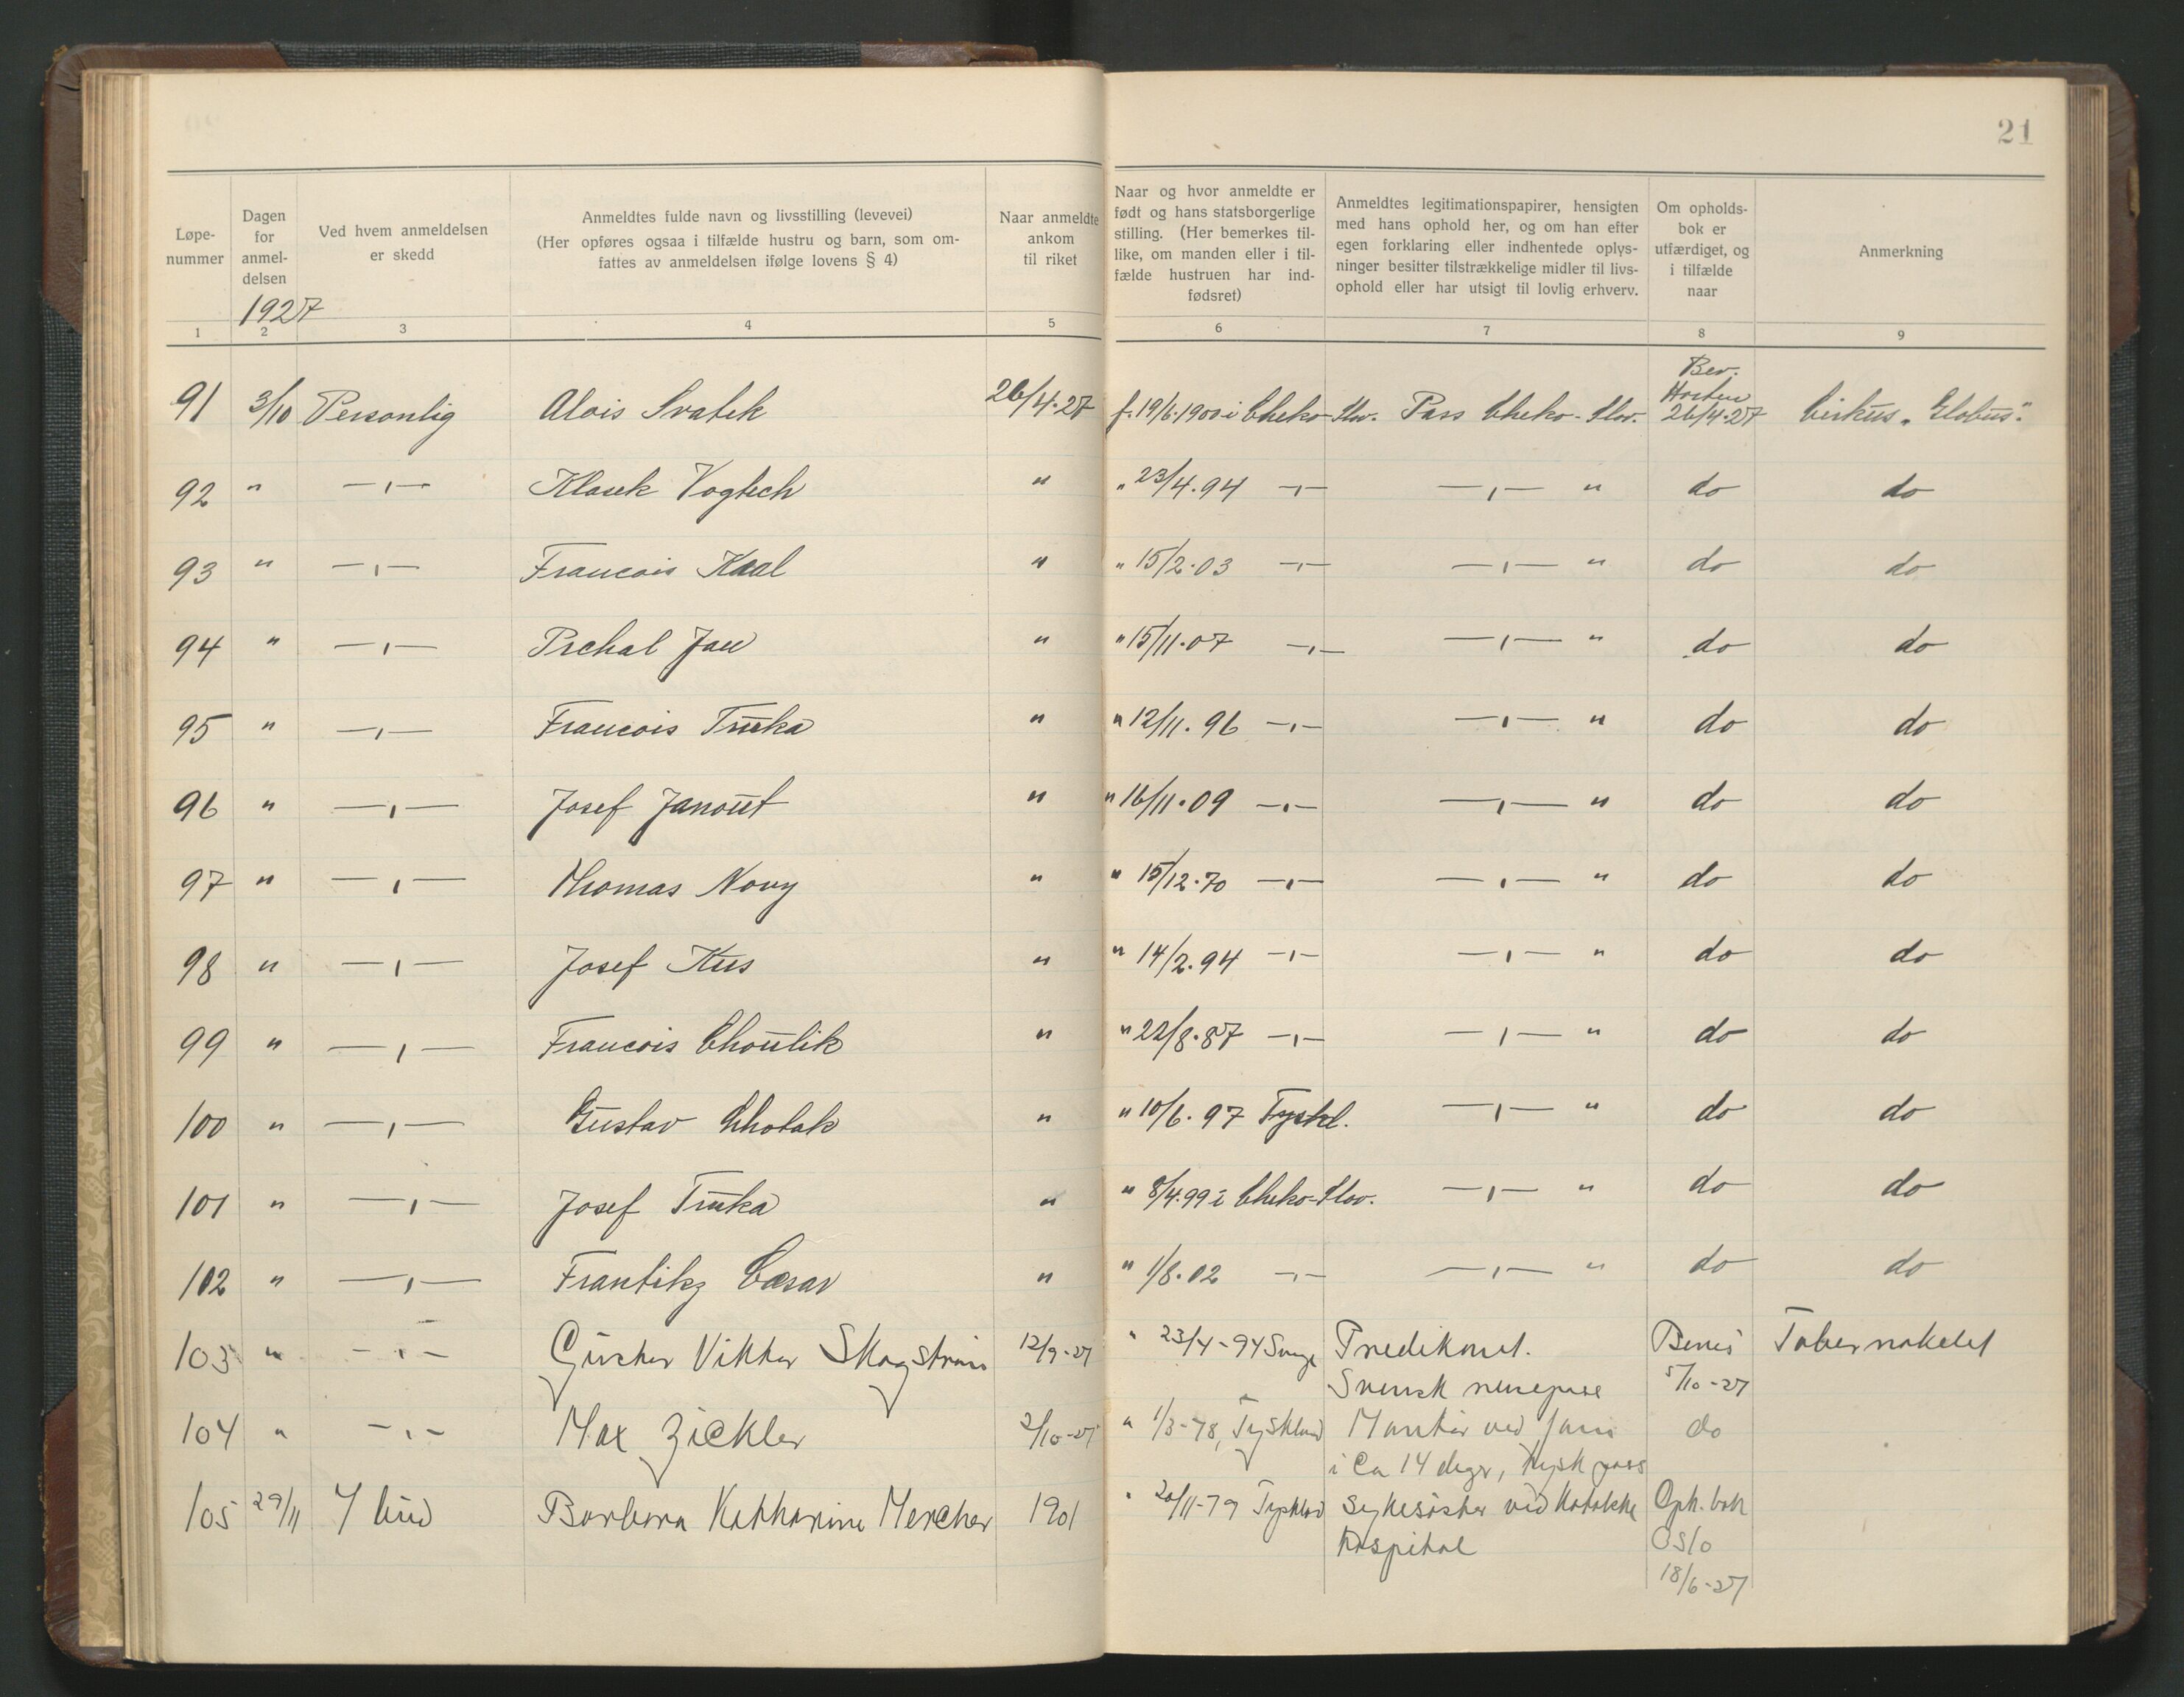 21
Løpe-
nummer
Dagen
for
anmel-
delsen
1927
Ved hvem anmeldelsen
er skedd
Anmeldtes fulde navn og livsstilling (levevei)
(Her opføres ogsaa i tilfælde hustru og barn, som om-
fattes av anmeldelsen ifølge lovens § 4)
Naar anmeldte
ankom
til riket
Naar og hvor anmeldte er
født og hans statsborgerlige
stilling. (Her bemerkes til-
like, om manden eller i til-
fælde hustruen har ind-
fødsret)
Anmeldtes legitimationspapirer, hensigten
med hans ophold her, og om han efter
egen forklaring eller indhentede oplys-
ninger besitter tilstrækkelige midler til livs-
ophold eller har utsigt til lovlig erhverv.
Om opholds-
bok er
utfærdiget, og
i tilfælde
naar
Anmerkning
1 2 3 4 5 6 7 8 9
91 3/10 Personlig Alois Svatek 26/4-27 f. 19/6.1900 i Cheko-Slov. Pass Cheko-Slov. Bev. Horten 26/4-27 Cirkus "Globus".
92 " —,— Klauk Vogtech " " 23/4.94 —,— —,— " do do
93 " —,— Francois Kaal " " 15/2.03 —,— —,— " do do
94 " —,— Prchal Jan " " 15/11.07 —,— —,— " do do
95 " —,— Francois Truka " " 12/11.96 —,— —,— " do do
96 " —,— Josef Janout " " 16/11.09 —,— —,— " do do
97 " —,— Thomas Novy " " 15/12.70 —,— —,— " do do
98 " —,— Josef Kus " " 14/2.94 —,— —,— " do do
99 " —,— Francois Choulik " " 22/8.87 —,— —,— " do do
100 " —,— Gustav Chotak " " 10/6.97 Tyskl. —,— " do do
101 " —,— Josef Truka " " 8/4.99 i Cheko-Slov. —,— " do do
102 " —,— Frantikz Cæsar " " 1/8.02 —,— —,— " do do
103 " —,— Viktor Skogstrøm 12/9-27 " 23/4-94 Predikant. Bevis Tabernaklet
Svensk reisepass 5/10-27
104 " —,— Max Zickler 3/10-27 " 1/3-78, Tyskland Montør ved do
i Ca 14 dager, tysk pass
105 29/11 I bud Barbara Katharina Mercher 1901 " 20/11-79 Tyskland sykesøster ved Katolske Oph. bok
hospital Oslo
18/6-27